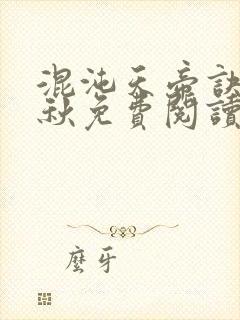 混沌天帝訣
秋免費閱讀
麼牙